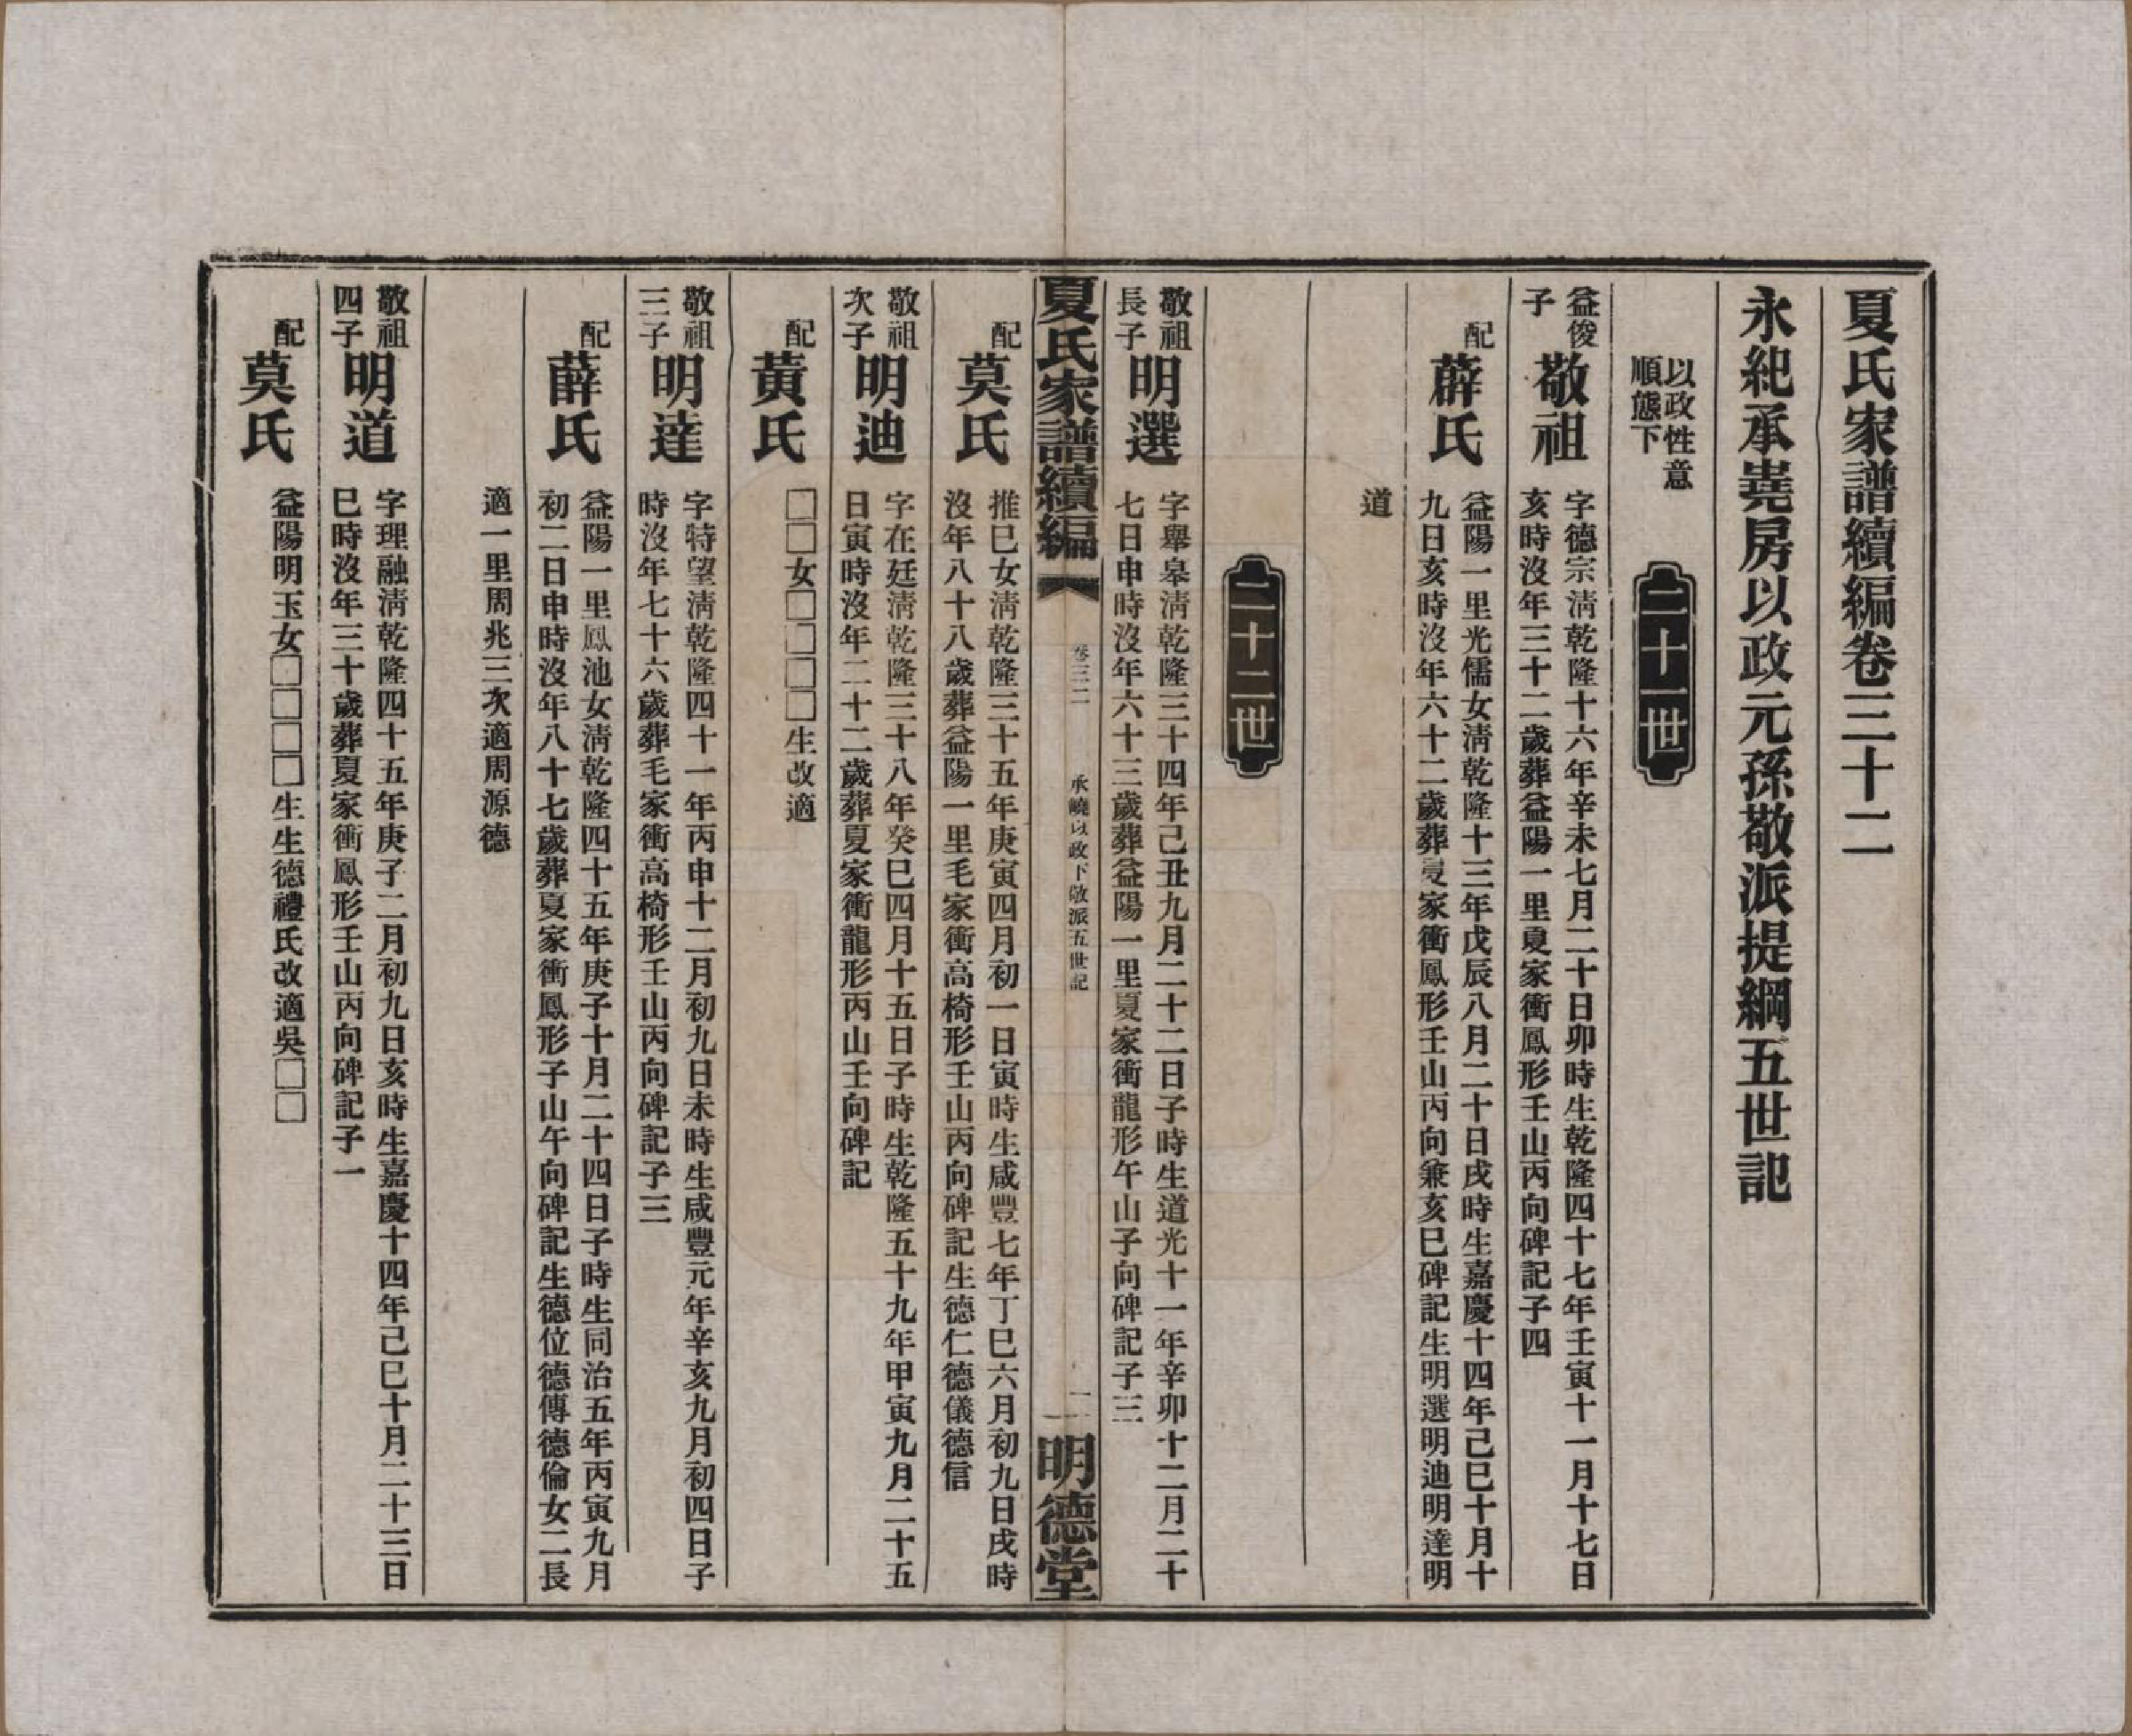 夏氏家譜續編卷三十二
永紀承堯房以政元孫敬派提綱五世記
以政性意
順態下
二十一世
益俊
子
敬祖
字德宗淸乾隆十六年辛未七月二十日卯時生乾隆四十七年壬寅十一月十七日
亥時沒年三十二歲葬益陽一里夏家衝鳳形壬山丙向碑記子四
配
薛氏
益陽一里光儒女淸乾隆十三年戊辰八月二十日戌時生嘉慶十四年己巳十月十
九日亥時沒年六十二歲葬夏家衝鳳形壬山丙向兼亥巳碑記生明選明迪明達明
道
二十二世
敬祖
長子
明選
字舉皋淸乾隆三十四年己丑九月二十二日子時生道光十一年辛卯十二月二十
七日申時沒年六十三歲葬益陽一里夏家衝龍形午山子向碑記子三
夏氏家譜續編
卷三二
承嶢以政下敬派五世記
一
明德堂
配
莫氏
推巳女淸乾隆三十五年庚寅四月初一日寅時生咸豐七年丁巳六月初九日戌時
沒年八十八歲葬益陽一里毛家衝高椅形壬山丙向碑記生德仁德儀德信
敬祖
次子
明迪
字在廷淸乾隆三十八年癸巳四月十五日子時生乾隆五十九年甲寅九月二十五
日寅時沒年二十二歲葬夏家衝龍形丙山壬向碑記
配
黃氏
□□女□□□□生改適
敬祖
三子
明達
字特望淸乾隆四十一年丙申十二月初九日未時生咸豐元年辛亥九月初四日子
時沒年七十六歲葬毛家衝高椅形壬山丙向碑記子三
配
薛氏
益陽一里鳳池女淸乾隆四十五年庚子十月二十四日子時生同治五年丙寅九月
初二日申時沒年八十七歲葬夏家衝鳳形子山午向碑記生德位德傳德倫女二長
適一里周兆三次適周源德
敬祖
四子
明道
字理融淸乾隆四十五年庚子二月初九日亥時生嘉慶十四年己巳十月二十三日
巳時沒年三十歲葬夏家衝鳳形壬山丙向碑記子一
配
莫氏
益陽明玉女□□□□生生德禮氏改適吳□□